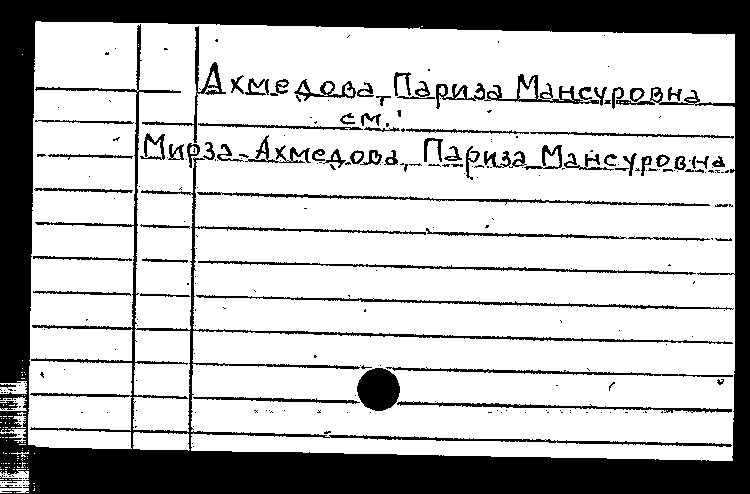 Ахмедова, Париза Мансуровна
см.:
Мирза-Ахмедова, Париза Мансуровна